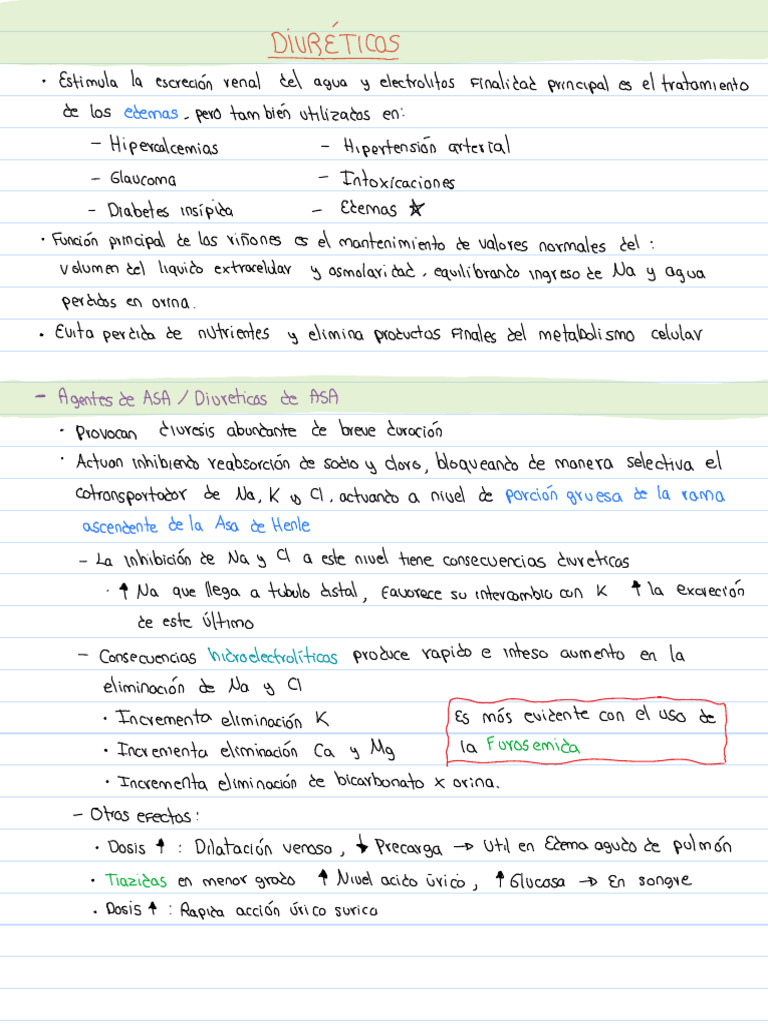 DIURÉTICOS
• Estimula la escreción renal del agua y electrolitos Finalidad principal es el tratamiento
de los edemas, pero también utilizados en:
- Hipercalcemias - Hipertensión arterial
- Glaucoma - Intoxicaciones
- Diabetes insípida - Edemas ☆
• Función principal de los riñones es el mantenimiento de valores normales del:
volumen del liquido extraceldar y osmolaridad, equilibrando ingreso de Na y agua
perdidos en orina.
• Evita perdida de nutrientes y elimina productos finales del metabolismo celular
- Agentes de ASA / Diureticos de ASA
• Provocan diuresis abundante de breve duración
• Actuan inhibiendo reabsorción de sodio y cloro, bloqueando de manera selectiva el
cotransportador de Na, K y Cl, actuando a nivel de porción gruesa de la rama
ascendente de la Asa de Henle
- La inhibición de Na y Cl a este nivel tiene consecuencias diureticas
• ↑ Na que llega a tubulo distal, favorece su intercambio con K ↑ la excreción
de este último
- Consecuencias hidroelectrolíticas produce rapido e inteso aumento en la
eliminación de Na y Cl
• Incrementa eliminación K
• Incrementa eliminación Ca y Mg
• Incrementa eliminación de bicarbonato x orina.
Es más evidente con el uso de
la Furosemida
- Otros efectos:
• Dosis ↑ : Dilatación venosa, ↓ Precarga → Util en Edema agudo de pulmón
• Tiazidas en menor grado ↑ Nivel acido úrico, ↑ Glucosa → En sangre
• Dosis ↑ : Rapida acción úrico surica